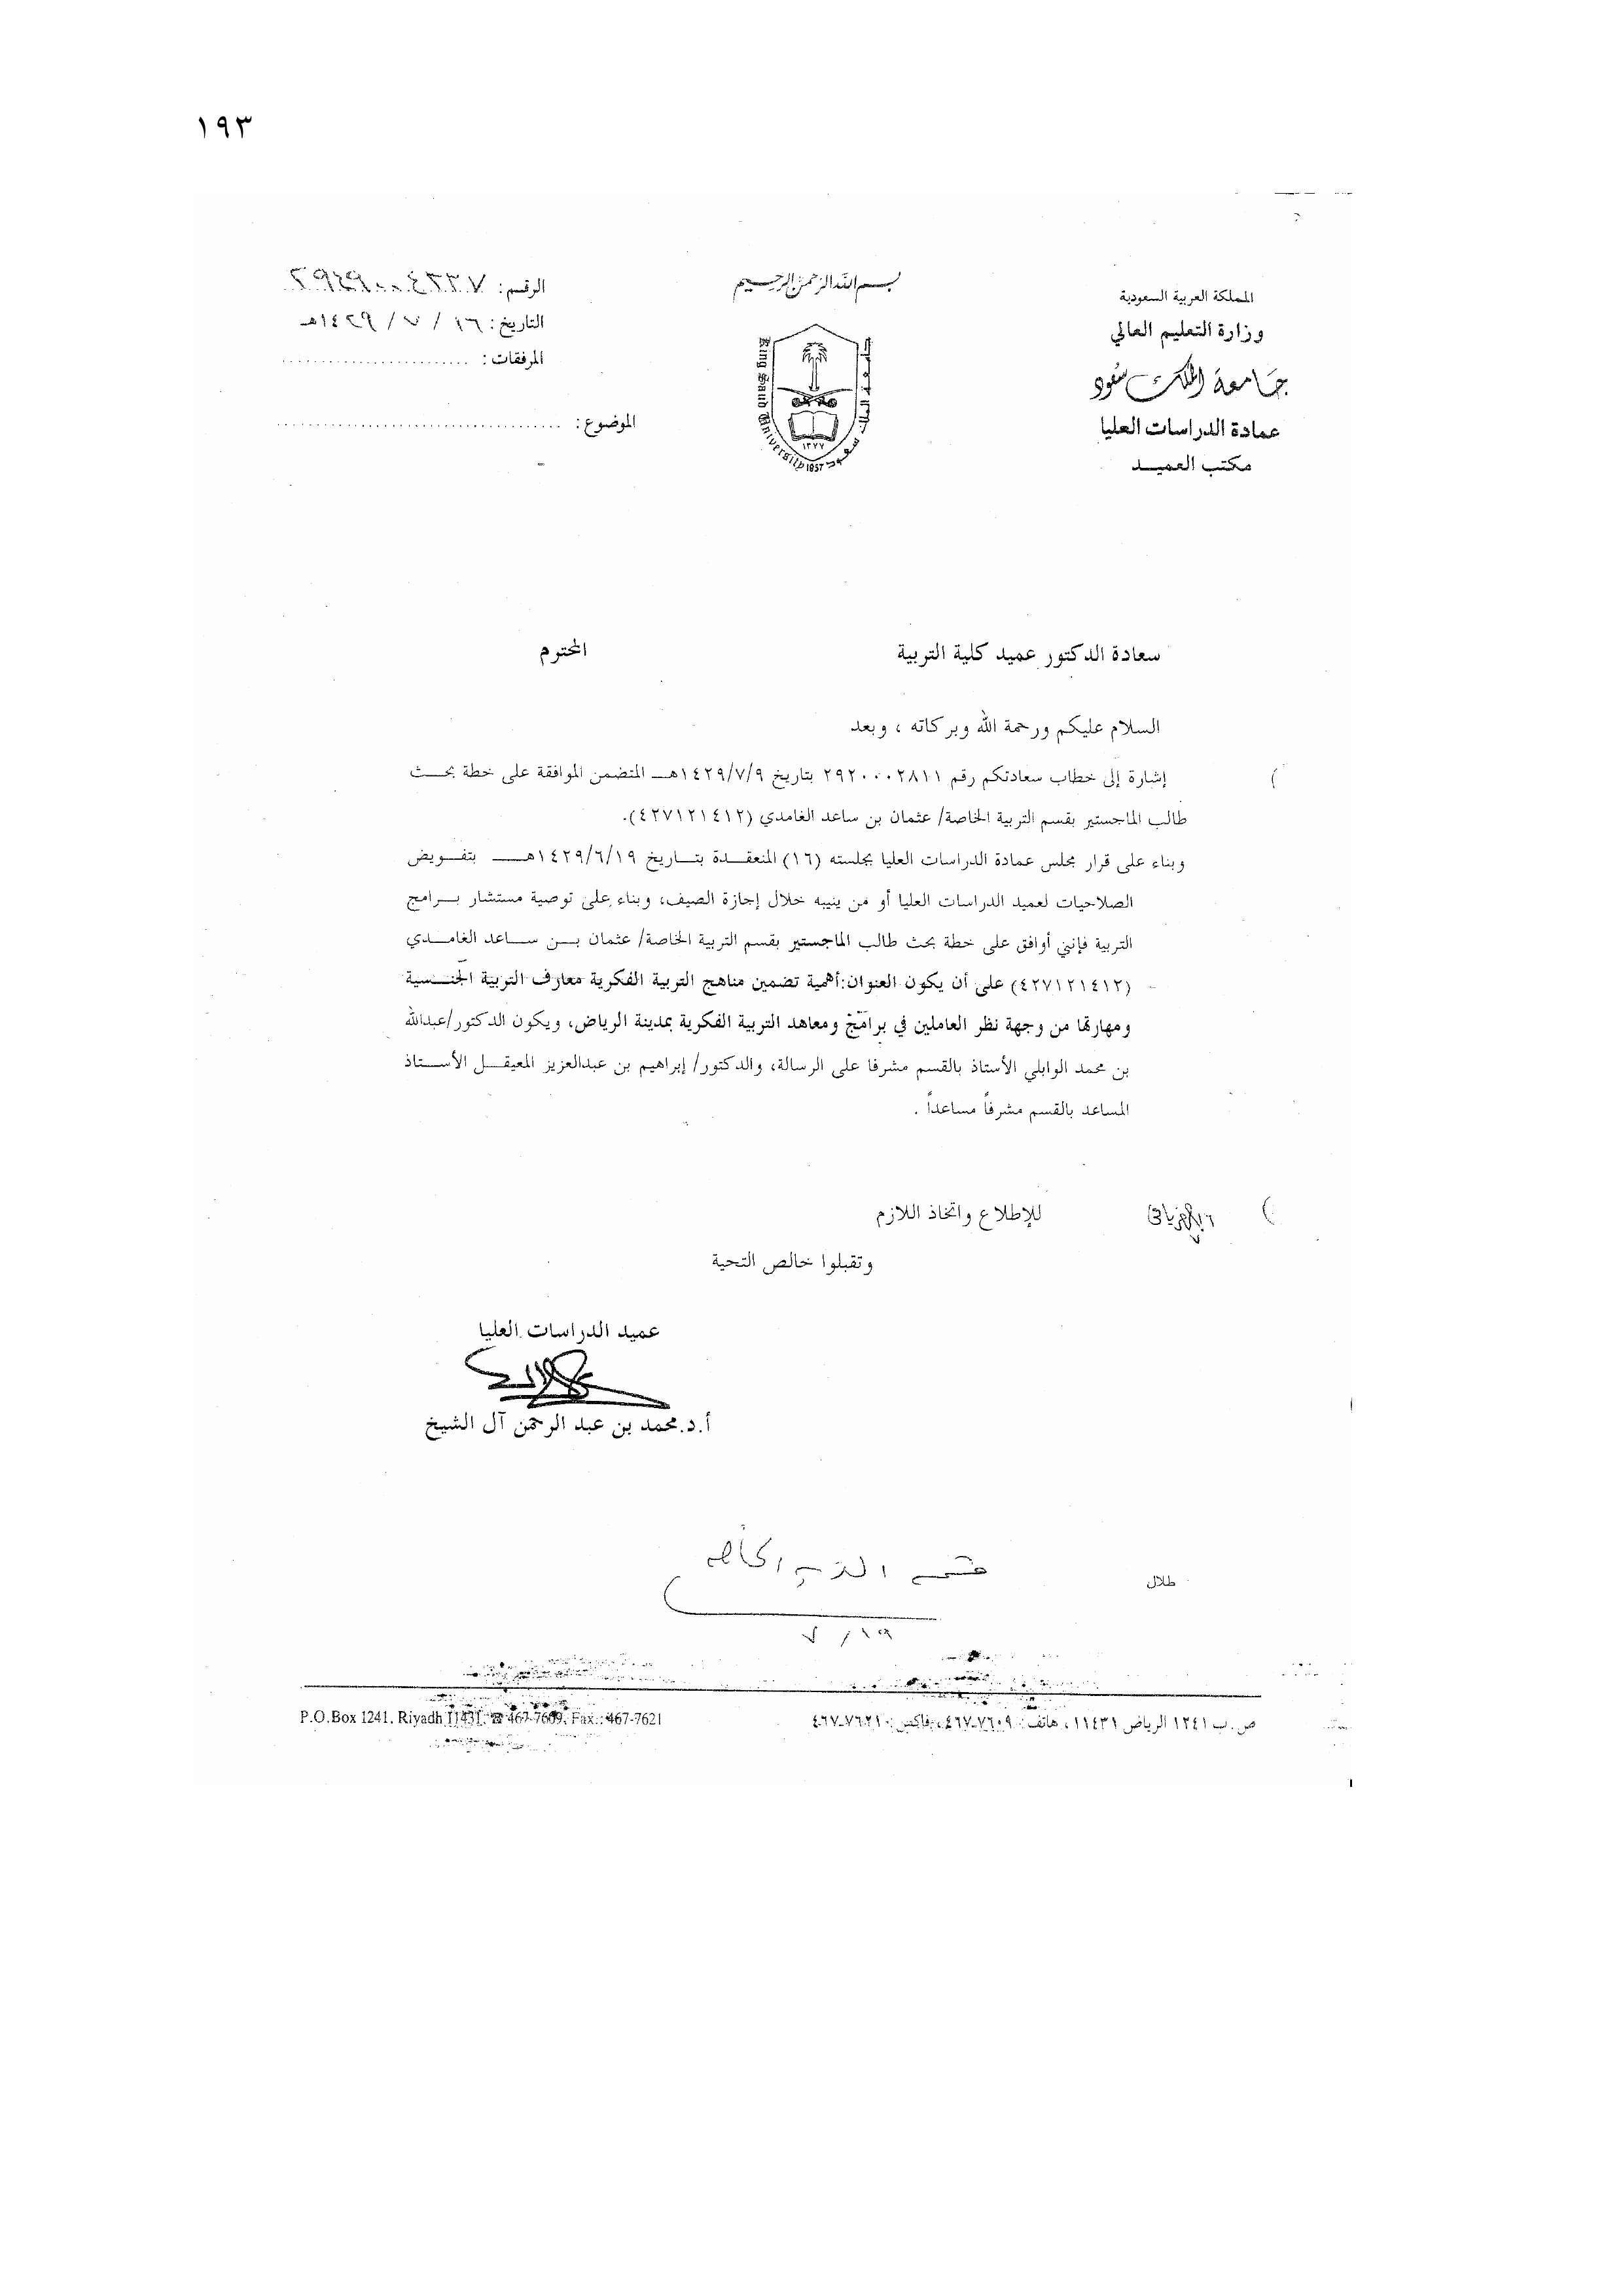 ١٩٣
بسم الله الرحمن الرحيم
المملكة العربية السعودية
وزارة التعليم العالي
جامعة الملك سعود
عمادة الدراسات العليا
مكتب العميد
King Saud University 1957
جامعة الملك سعود ١٣٧٧
الرقم:
التاريخ: ١٦ / ٧ / ١٤٢٩هـ
المرفقات:
الموضوع:
سعادة الدكتور عميد كلية التربية المحترم
السلام عليكم ورحمة الله وبركاته ، وبعد
إشارة إلى خطاب سعادتكم رقم ٢٩٢٠٠٠٢٨١١ بتاريخ ١٤٢٩/٧/٩هـ المتضمن الموافقة على خطة بحث
طالب الماجستير بقسم التربية الخاصة/ عثمان بن ساعد الغامدي (٤٢٧١٢١٤١٢).
وبناء على قرار مجلس عمادة الدراسات العليا بجلسته (١٦) المنعقدة بتاريخ ١٤٢٩/٦/١٩هـ بتفويض
الصلاحيات لعميد الدراسات العليا أو من ينيبه خلال إجازة الصيف، وبناء على توصية مستشار برامج
التربية فإنني أوافق على خطة بحث طالب الماجستير بقسم التربية الخاصة/ عثمان بن ساعد الغامدي
(٤٢٧١٢١٤١٢) على أن يكون العنوان:أهمية تضمين مناهج التربية الفكرية معارف التربية الجنسية
ومهارتها من وجهة نظر العاملين في برامج ومعاهد التربية الفكرية بمدينة الرياض، ويكون الدكتور/عبدالله
بن محمد الوابلي الأستاذ بالقسم مشرفا على الرسالة، والدكتور/ إبراهيم بن عبدالعزيز المعيقل الأستاذ
المساعد بالقسم مشرفاً مساعداً .
للإطلاع واتخاذ اللازم
وتقبلوا خالص التحية
عميد الدراسات العليا
أ.د.محمد بن عبد الرحمن آل الشيخ
قسم التربية الخاصة
طلال
١٩ / ٧
ص.ب ١٢٤١ الرياض ١١٤٣١، هاتف: ٤٦٧-٧٦٠٩، فاكس: ٤٦٧-٧٦٢١
P.O.Box 1241, Riyadh 11431, ☎ 467-7609, Fax.: 467-7621